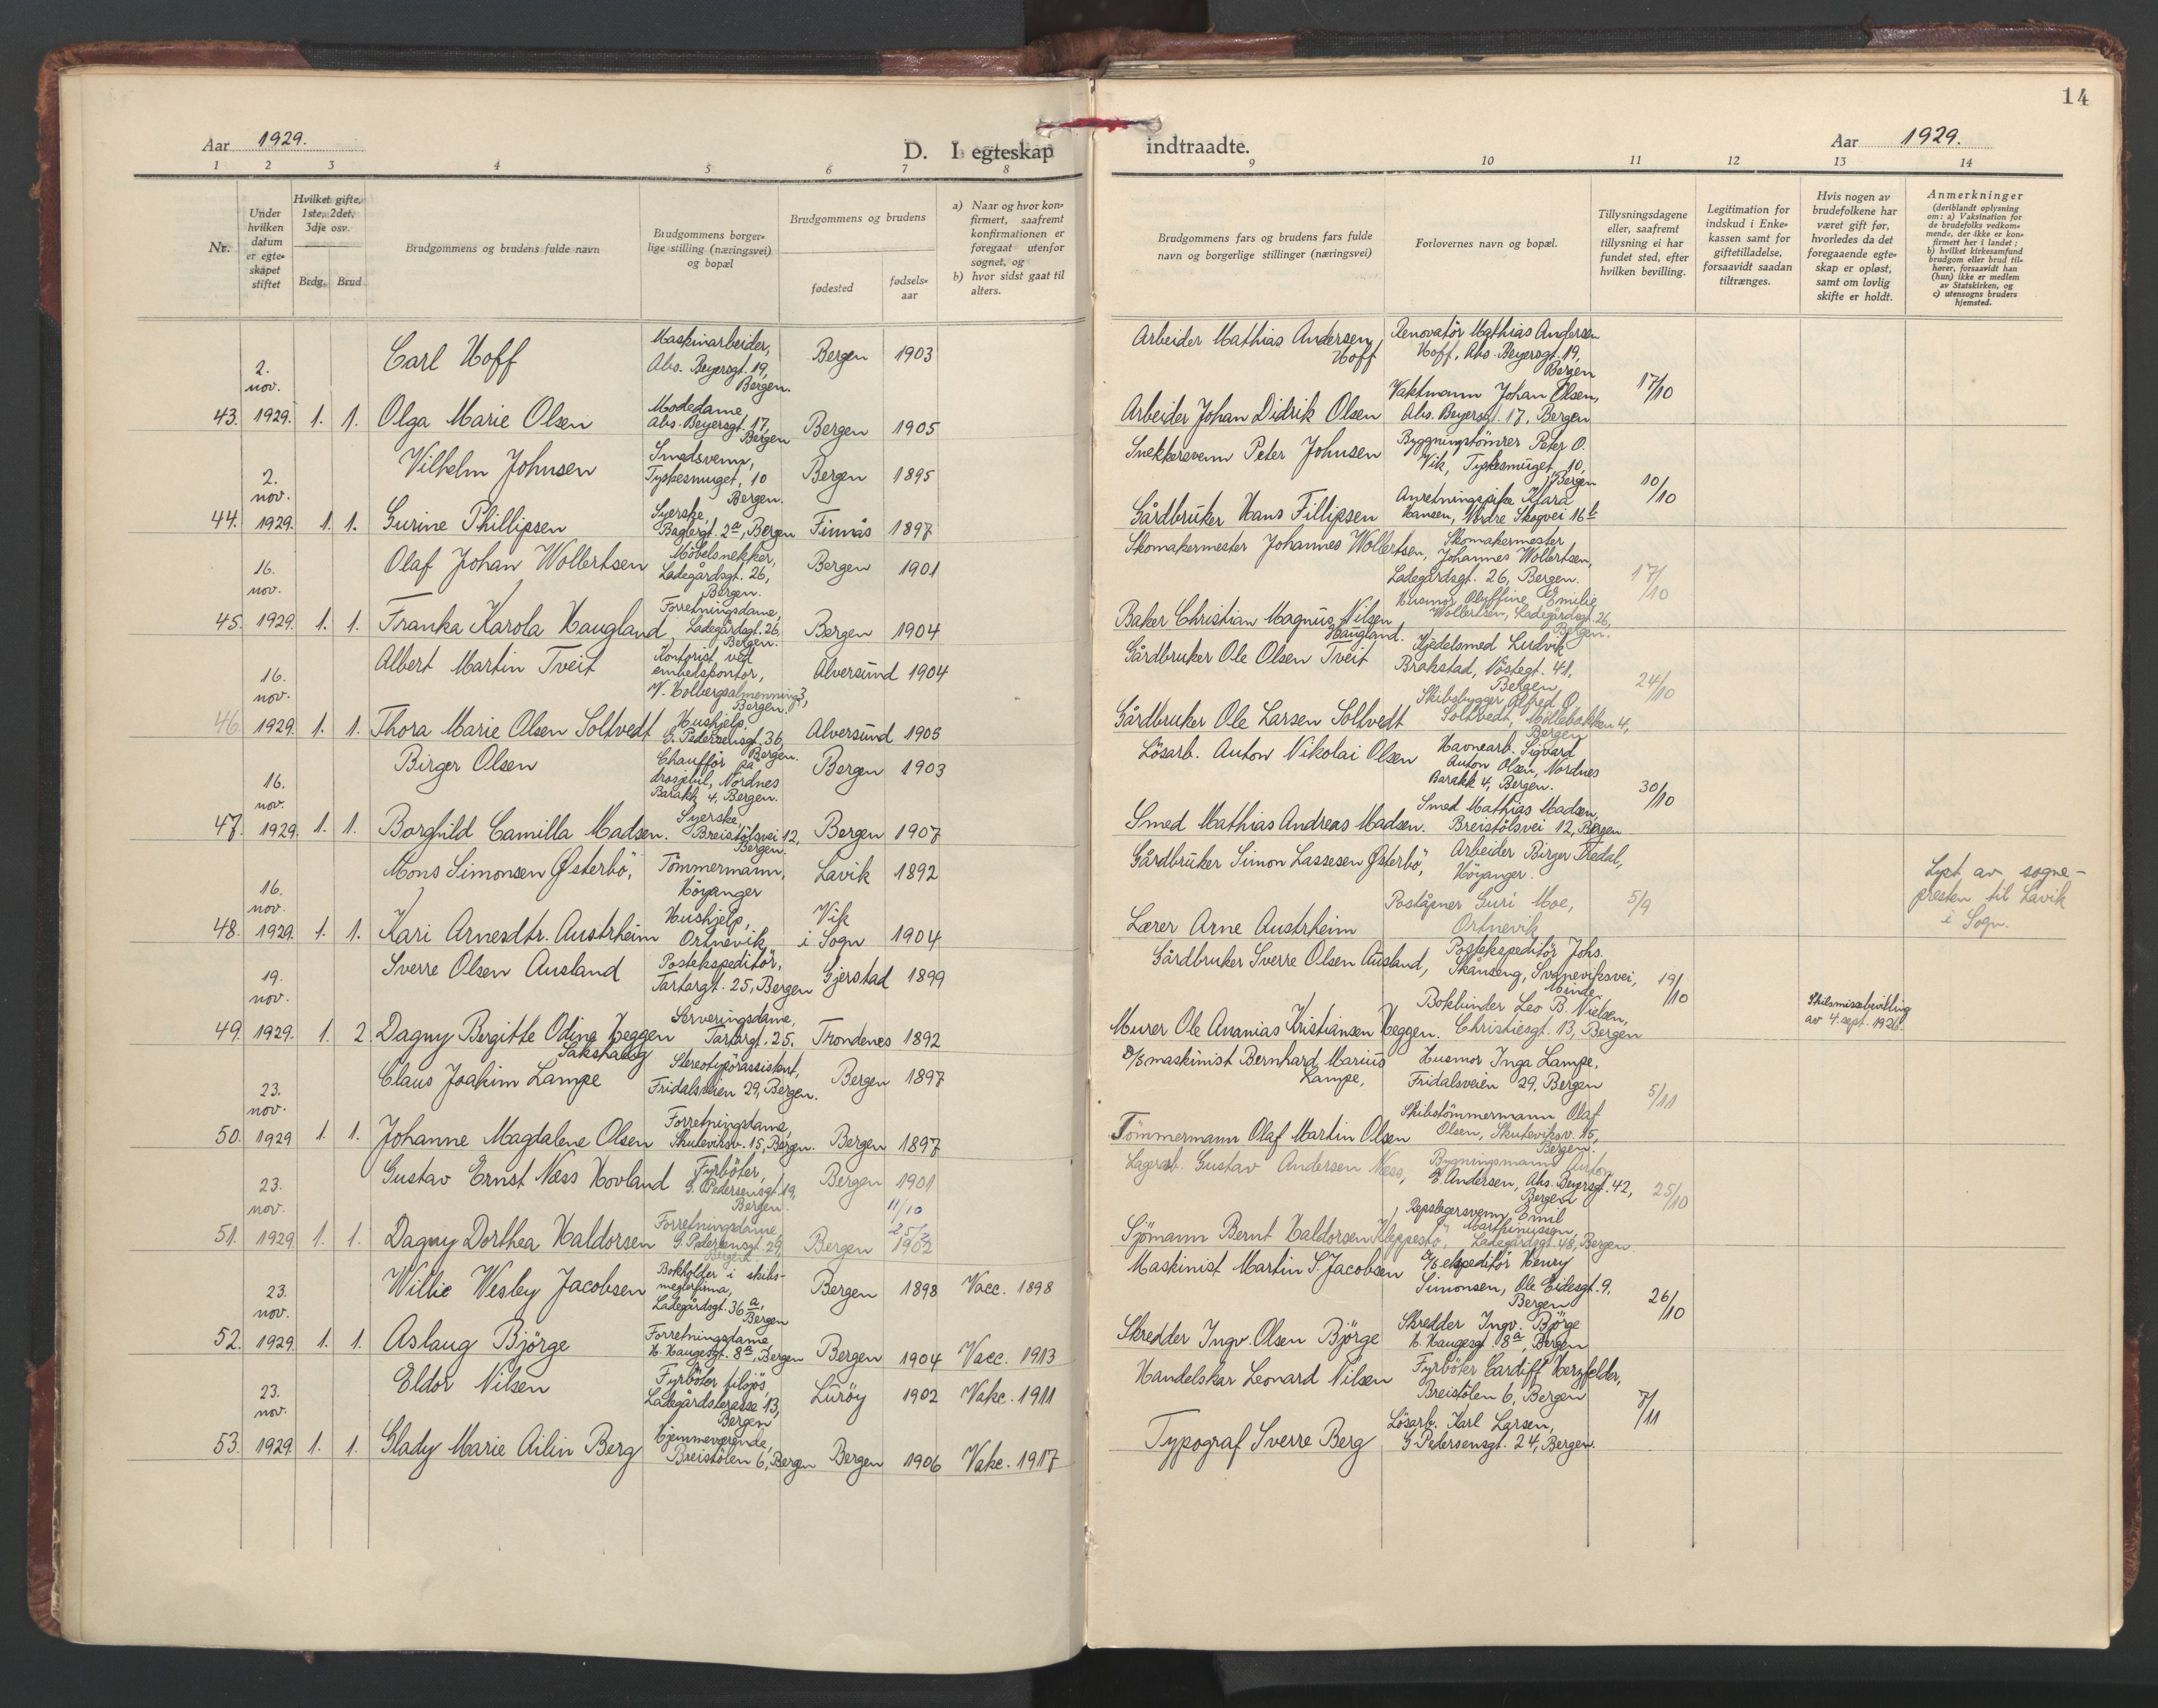 14
Aar 1929.
D. I egteskap indtraadte.
Aar 1929.
1 2 3 4 5 6 7 8 9 10 11 12 13 14
Nr.
Under hvilken datum er egteskapet stiftet
Hvilket gifte, 1ste, 2det, 3dje osv.
Brdg. Brud
Brudgommens og brudens fulde navn
Brudgommens borgerlige stilling (næringsvei) og bopæl
Brudgommens og brudens
fødested
fødselsaar
a) Naar og hvor konfirmert, saafremt konfirmationen er foregaat utenfor sognet, og
b) hvor sidst gaat til alters.
Brudgommens fars og brudens fars fulde navn og borgerlige stillinger (næringsvei)
Forlovernes navn og bopæl.
Tillysningsdagene eller, saafremt tillysning ei har fundet sted, efter hvilken bevilling.
Legitimation for indskud i Enkekassen samt for giftetilladelse, forsaavidt saadan tiltrænges.
Hvis nogen av brudefolkene har været gift før, hvorledes da det foregaaende egteskap er opløst, samt om lovlig skifte er holdt.
Anmerkninger
(deriblandt oplysning om: a) Vaksination for de brudefolks vedkommende, der ikke er konfirmert her i landet; b) hvilket kirkesamfund brudgom eller brud tilhører, forsaavidt han (hun) ikke er medlem av Statskirken, og c) utensogns bruders hjemsted.
43. 2. nov. 1929. 1. 1.
Carl Hoff
Maskinarbeider, Abs. Beyersgt. 19, Bergen.
Bergen 1903
Arbeider Mathias Andersen Hoff
Renovatör Mathias Andersen Hoff, Abs. Beyersgt. 19, Bergen
17/10
Olga Marie Olsen
Modedame, Abs. Beyersgt. 17, Bergen
Bergen 1905
Arbeider Johan Didrik Olsen
Vaktmann Johan Olsen, Abs. Beyersgt. 17, Bergen
44. 2. nov. 1929. 1. 1.
Vilhelm Johnsen
Smedsvenn, Tyskesmuget, 10 Bergen.
Bergen 1895
Snekkersvenn Peter Johnsen
Byggningstömrer Peter O. Vik, Tyskesmuget, 10, Bergen
10/10
Gurine Phillipsen
Syerske, Baglergt. 2a, Bergen
Finnås 1897
Gårdbruker Hans Fillipsen
Anretningspike Klara Hansen, Nordre Skogvei 16b
45. 16. nov. 1929. 1. 1.
Olaf Johan Wollertsen
Möbelsnekker, Ladegårdsgt. 26, Bergen.
Bergen 1901
Skomakermester Johannes Wollertsen,
Skomakermester Johannes Wollertsen, Ladegårdsgt. 26, Bergen.
17/10
Franka Karola Haugland,
Forretningsdame, Ladegårdsgt. 26, Bergen.
Bergen 1904
Baker Christian Magnus Nilsen Haugland.
Husmor Olyffine Emilie Wollertsen, Ladegårdsgt. 26, Bergen.
46. 16. nov. 1929. 1. 1.
Albert Martin Tveit
Kontorist ved embedskontor, W. Holbergsalmenning 3, Bergen.
Alversund 1904
Gårdbruker Ole Olsen Tveit
Kjedelsmed Ludvik Brakstad, Nöstegt. 41, Bergen,
24/10
Thora Marie Olsen Soltvedt
Hushjelp, G. Pedersensgt. 36, Bergen.
Alversund 1903
Gårdbruker Ole Larsen Soltvedt
Skibsbygger Alfred O. Soltvedt, Möllebakken 4, Bergen
47. 16. nov. 1929. 1. 1.
Birger Olsen
Chauffför på drosjebil, Nordnes Barakk 4, Bergen.
Bergen 1903
Lösarb. Anton Nikolai Olsen
Havnearb. Sigvard Anton Olsen, Nordnes Barakk 4, Bergen.
30/10
Borghild Camilla Madsen.
Syerske, Breistölsvei 12, Bergen.
Bergen 1907
Smed Mathias Andreas Madsen.
Smed Mathias Madsen, Breistölsvei 12, Bergen
48. 16. nov. 1929. 1. 1.
Mons Simonsen Østerbö,
Tömmermann, Höyanger
Lavik 1892
Gårdbruker Simon Lassesen Østerbö,
Arbeider Birger Tredal, Höyanger.
5/9
Lyst av sogne-
presten til Lavik
i Sogn.
Kari Arnesdtr. Austrheim
Hushjelp, Ortnevik
Vik i Sogn 1904
Lærer Arne Austrheim
Poståpner Guri Moe, Ortnevik
49. 19. nov. 1929. 1. 2
Sverre Olsen Ausland
Postekspeditör, Tartargt. 25, Bergen
Gjerstad 1899
Gårdbruker Sverre Olsen Ausland,
Postekspeditör Johs. Skånseng, Svaneviksvei, Minde
19/10
Skilsmissebevilling
av 4. sept. 1926.
Dagny Bergitte Odina Heggen Sakshaug
Serveringsdame, Tartargt. 25.
Trondenes 1892
Murer Ole Ananias Kristiansen Heggen.
Bokbinder Leo B. Nielsen, Christiesgt. 13, Bergen
50. 23. nov. 1929 1. 1.
Claus Joakim Lampe
Stereotypörassistant, Fridalsveien 29, Bergen.
Bergen 1897
D/S maskinist Bernhard Marius Lampe,
Husmor Inga Lampe, Fridalsveien 29, Bergen
5/11
Johanne Magdalene Olsen
Forretningsdame, Skuteviksv. 15, Bergen.
Bergen 1897
Tömmermann Olaf Martin Olsen
Skibstömmermann Olaf Olsen, Skuteviksv. 15, Bergen.
51. 23. nov. 1929. 1. 1.
Gustav Ernst Næss Hovland
Fyrböter, G. Pedersensgt. 19, Bergen.
Bergen 1901
11/10
Lagerarb. Gustav Andersen Næss,
Bygningsmann Anton E. Andersen, Abs. Beyersgt. 42, Bergen
25/10
Dagny Dorthea Haldorsen
Forretningsdame, G. Pedersensgt. 29, Bergen
Bergen 1902
Sjömann Bernt Haldorsen Kleppestö,
Repslagersvenn Emil Marthinussen, Ladegårdsgt. 48, Bergen.
52. 23. nov. 1929. 1. 1.
Willie Wesley Jacobsen
Bokholder i skibsmeglerfirma, Ladegårdsgt. 36a, Bergen
Bergen 1898 Vacc. 1898
Maskinist Martin S. Jacobsen
D/S ekspeditör Henry Simonsen, Ole Eidesgt. 9, Bergen
26/10
Aslaug Björge
Forretningsdame, H. Haugesgt. 8a, Bergen
Bergen 1904 Vacc. 1913
Skredder Ingv. Olsen Björge
Skredder Ingv. Björge H. Haugesgt 8a, Bergen
53. 23. nov. 1929. 1. 1.
Eldor Nilsen
Fyrböter tilsjös, Ladegårdsterasse 13, Bergen
Luröy 1902 Vakc. 1911
Handelskar Leonard Nilsen
Fyrböter Cardiff Herzfelder, Breistölen 6, Bergen
7/11
Glady Marie Ailin Berg
Hjemmeværende, Breistölen 6, Bergen
Bergen 1906 Vakc. 1917
Typograf Sverre Berg
Lösarb. Karl Larsen, G. Pedersensgt. 24, Bergen.